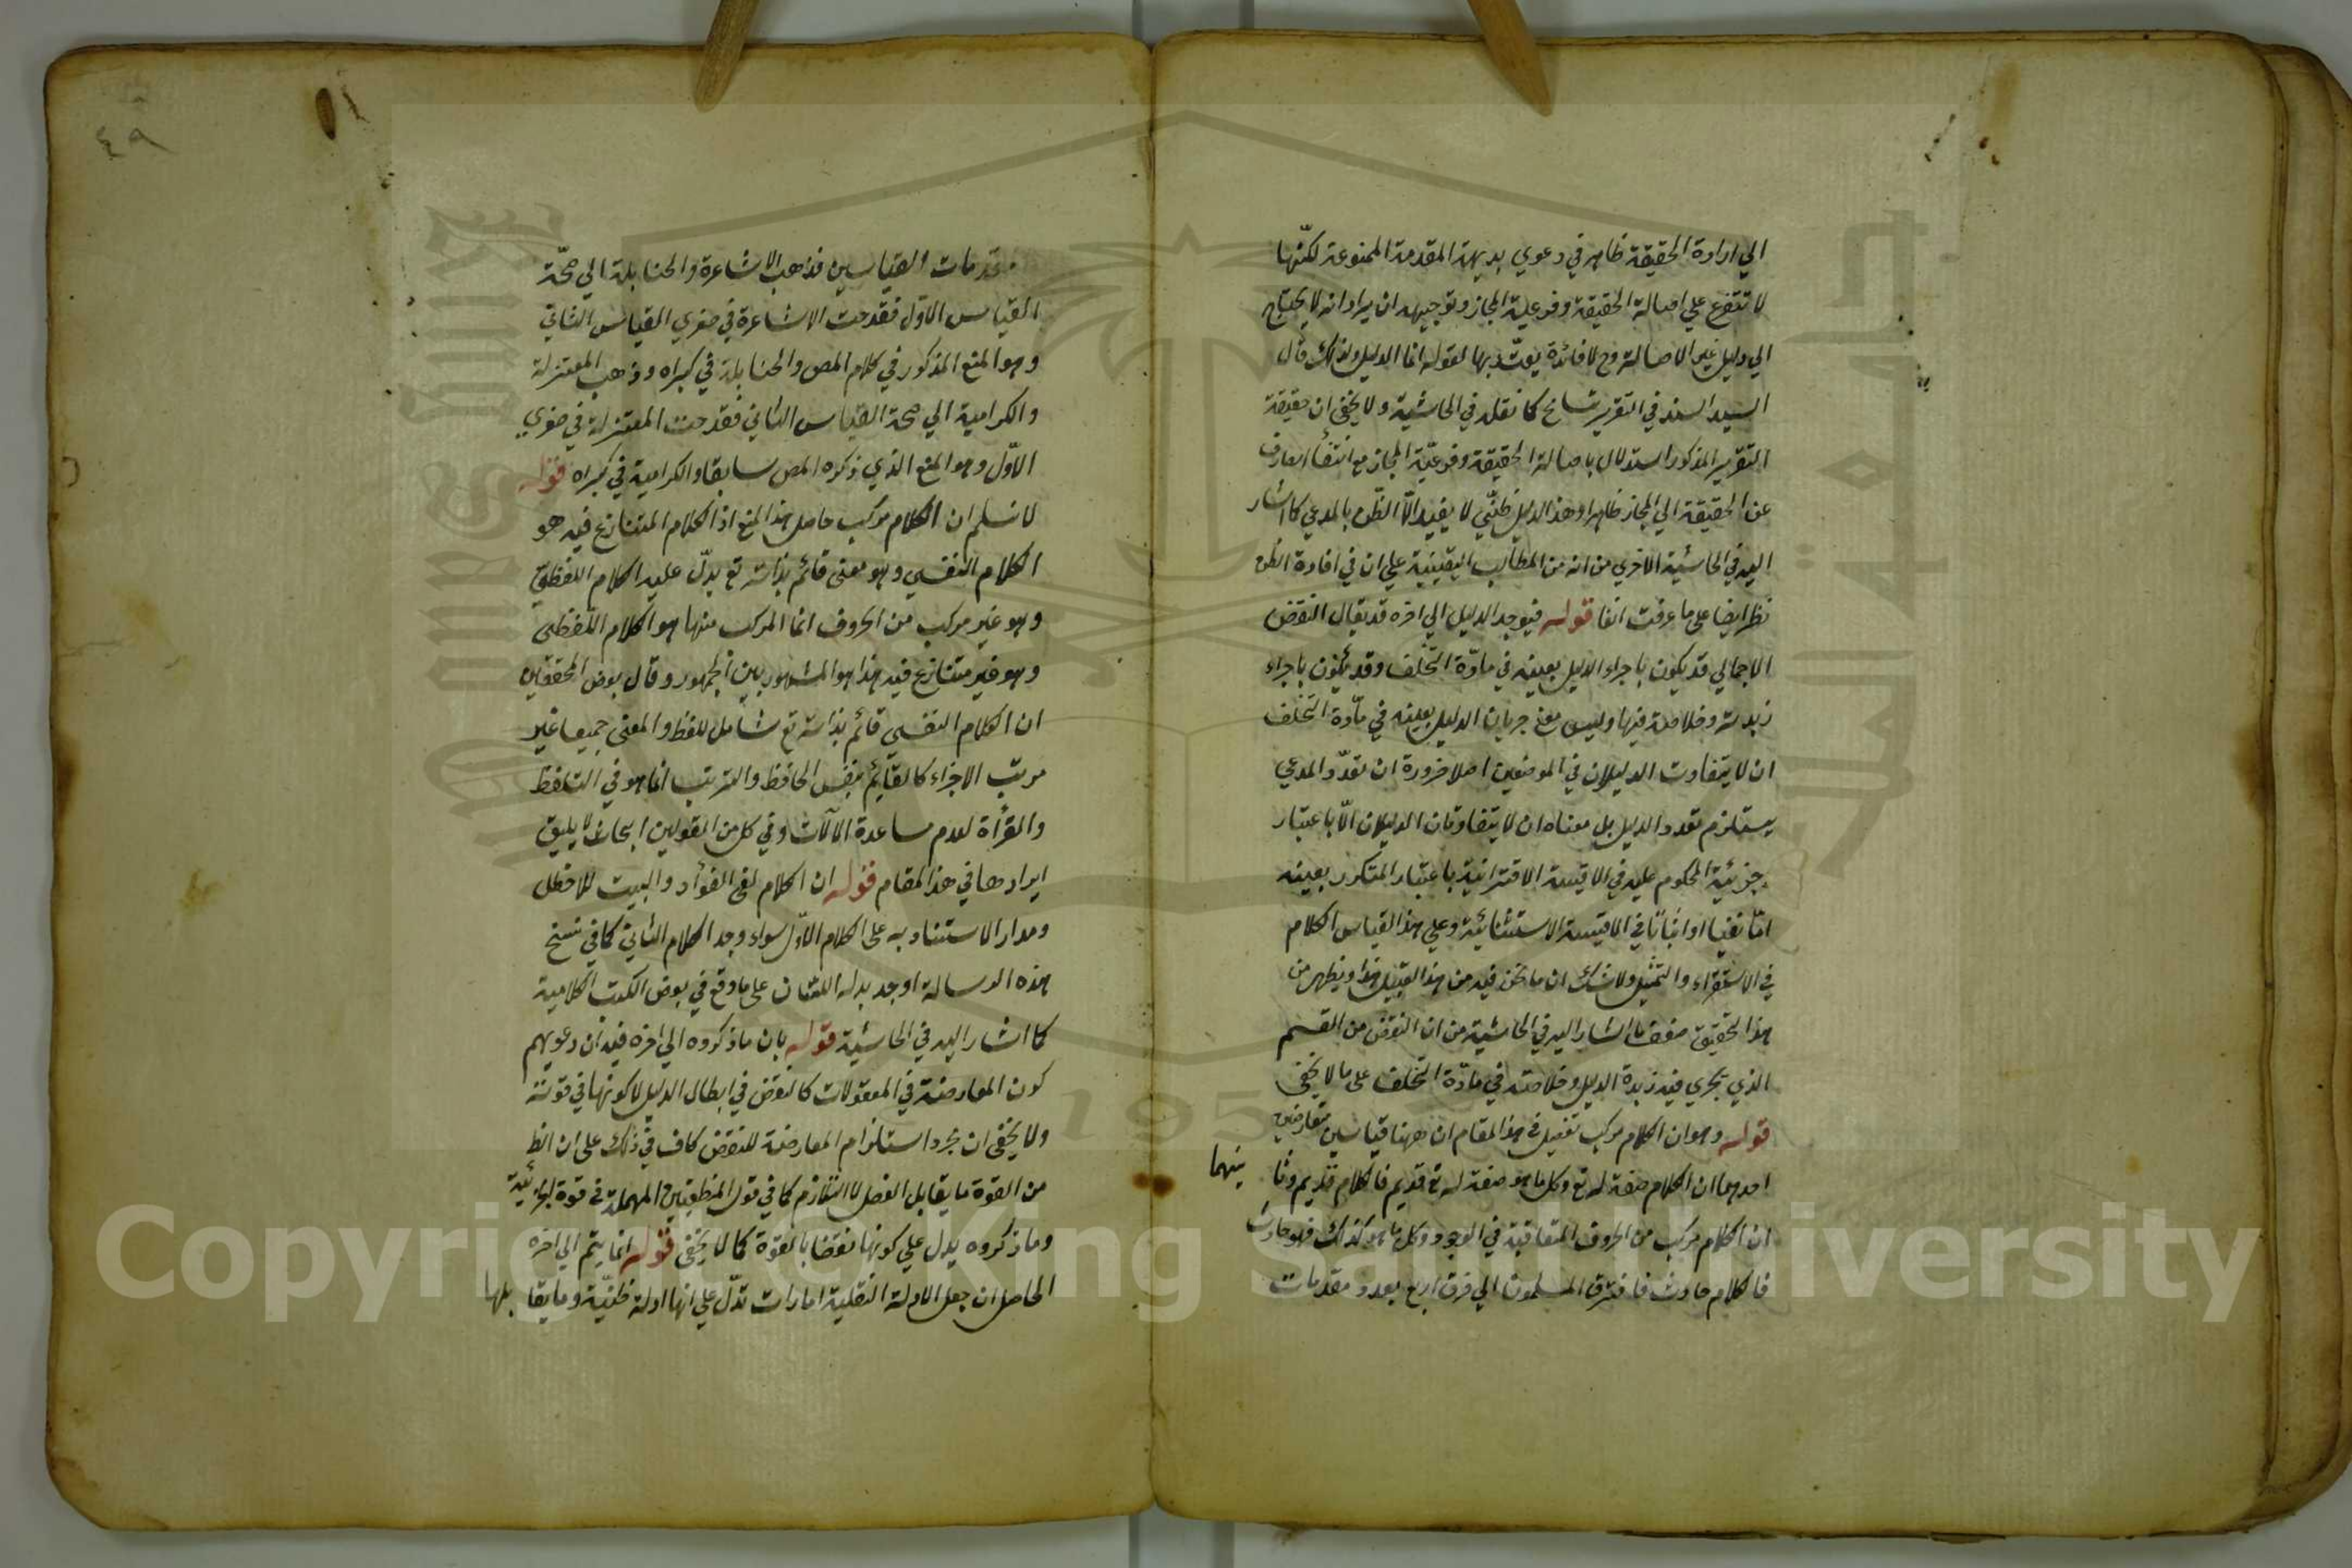 الي ارادة الحقيقة ظاهر في دعوي بديهة المقدمة الممنوعة لكنّها
لا تتفرع علي اصالة الحقيقة وفرعية المجاز وتوجيهه ان يراد انه لا يحتاج
الي دليل غير الاصالة وح لا فائدة يعتّد بها لقوله انما الدليل ولذلك قال
السيد السند في التقرير تسامح كما نقل في الحاشية ولا يخفى ان حقيقة
التقرير المذكور استدلال باصالة الحقيقة وفرعيّة المجاز مع انتفاء الصارف
عن الحقيقة الي المجاز ظاهرا وهذا الدليل ظنّي لا يفيد الّا الظّن بالمدعي كما اشار
اليه في الحاشية الاخري من انه من المطالب اليقينية علي ان في افادة الظن
نظرا ايضا على ما عرفت انفا قوله فيوجد الدليل الي اخره قد يقال النقض
الاجمالي قد يكون باجراء الدليل بعينه في مادّة التخلّف وقد يكون باجراء
زبدته وخلاصة فيها وليس معنى جريان الدليل بعينه في مادّة التخلف
ان لا يتفاوت الدليلان في الموضعين اصلا ضرورة ان تعدّد المدعي
يستلزم تعدد الدليل بل معناه ان لا يتفاوتان الدليلان الّا باعتبار
جزئية المحكوم عليه في الاقيسة الاقترانية باعتبار المتكرر بعينه
امّا نفيا او اثباتا في الاقيسة الاستثنائية وعلي هذا القياس الكلام
في الاستقراء والتمثيل ولا شك ان ما نحن فيه من هذا القبيل هذا ويظهر من
هذا التحقيق ضعف ما اشار اليه في الحاشية من ان النقض من القسم
الذي يجري فيه زبدة الدليل وخلاصته في مادّة التخلف على ما لا يخفى
قوله وهو ان الكلام مركب تفصيل في هذا المقام ان ههنا قياسين متعارضين
احدهما ان الكلام صفة له تع وكل ما هو صفة له تع قديم فالكلام قديم وثا نيهما
ان الكلام مركب من الحروف المتعاقبة في الوجود وكل ما هو كذلك فهو حادث
فالكلام حادث فافترق المسلمون الي فرق اربع بعدد مقدمات
٤٩
مقدمات القياسين فذهب الاشاعرة والحنابلة الي صحّة
القياس الاوّل فقدحت الاشاعرة في صغري القياس الثاني
وهو المنع المذكور في كلام المص والحنابلة في كبراه وذهب المعتزلة
والكرامية الي صحة القياس الثاني فقدحت المعتزلة في صغري
الاوّل وهو المنع الذي ذكره المص سابقا والكرامية في كبراه قوله
لا نسلم ان الكلام مركب حاصل هذا المنع اذ الكلام المتنازع فيه هو
الكلام النفسي وهو معنى قائم بذاته تع يدلّ عليه الكلام اللفظي
وهو غير مركب من الحروف انما المركب منها هو الكلام اللفظي
وهو غير متنازع فيه هذا هو المشهور بين الجمهور وقال بعض المحققين
ان الكلام النفسي قائم بذاته تع شامل للفظ والمعنى جميعا غير
مرتب الاجزاء كالقائم بنفس الحافظ والترتيب انما هو في التلفظ
والقرأة لعدم مساعدة الآلات وفي كل من القولين ابحاث لا يليق
ايرادها في هذا المقام قوله ان الكلام لفي الفؤاد والبيت للاخطل
ومدار الاستناد به على الكلام الاوّل سواء وجد الكلام الثاني كما في نسخ
هذه الرسالة او وجد بدله اللسان على ما وقع في بعض الكتب الكلامية
كما اشار اليه في الحاشية قوله بان ما ذكروه الي اخره فيه ان دعويهم
كون المعارضة في المعقولات كالنقض في ابطال الدليل لا كونها في قوته
ولا يخفى ان مجرد استلزام المعارضة للنقض كاف في ذلك على ان الظ
من القوة ما يقابل الفعل لا التلازم كما في قول المنطقيين المهملة في قوة الجزئية
وما ذكروه يدل علي كونها نقضا بالقوة كما لا يخفى قوله انما يتم الي اخره
الحاصل ان جعل الادلة النقلية امارات تدّل علي انها ادلة ظنيّة وما يقا بلها
Copyright © King Saud University